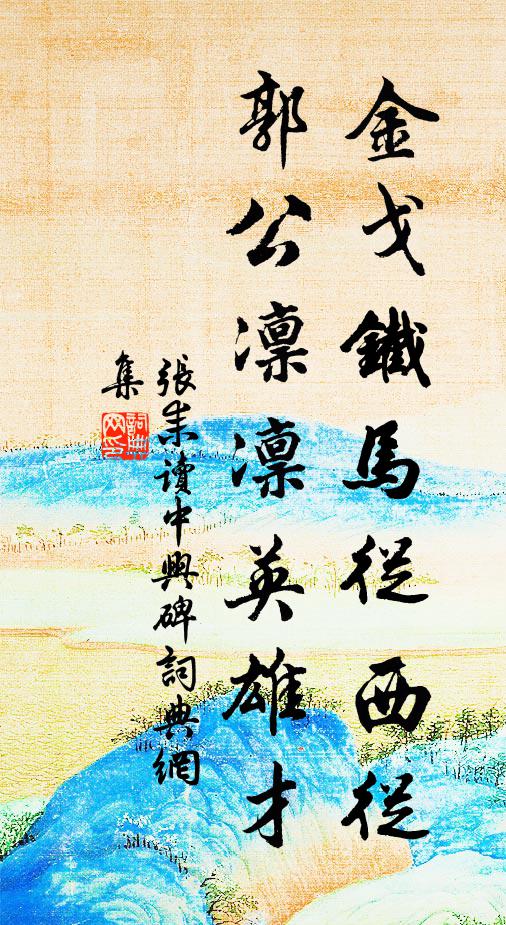 金戈鐵馬從西從
郭公凜凜英雄才
張耒讀中興碑詞典網
集
詞典
网印